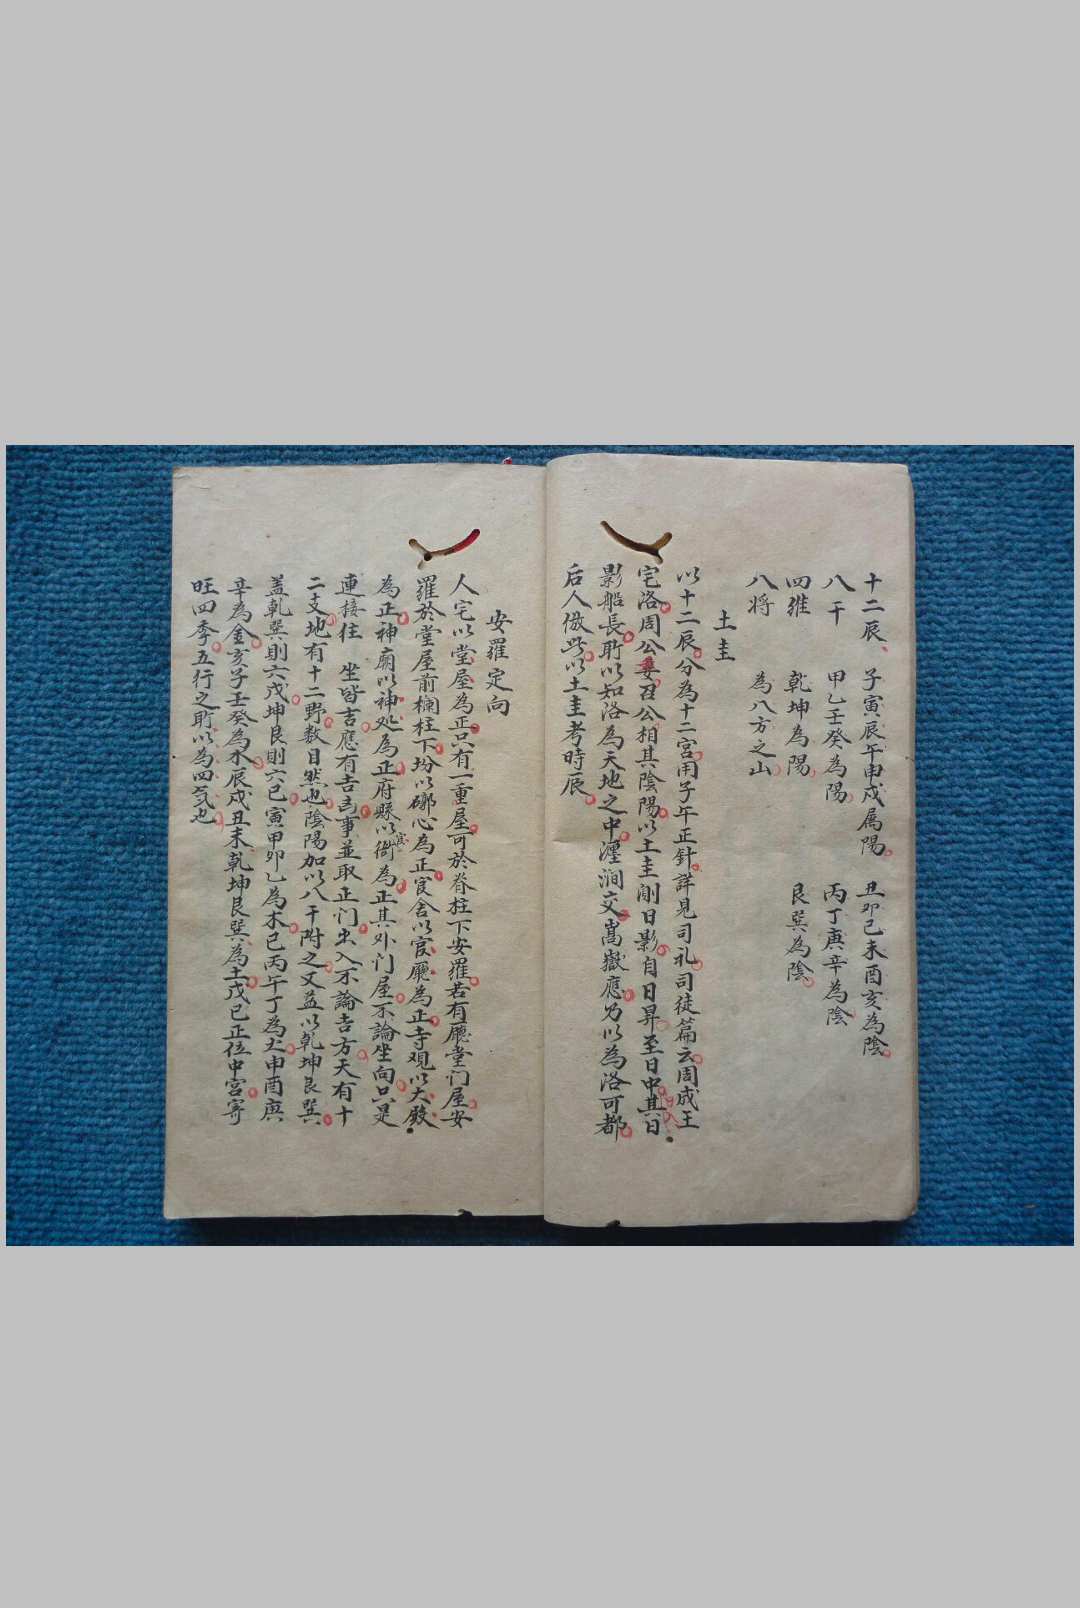 十二辰 子寅辰午申戌属陽 丑卯己未酉亥為陰
八干 甲乙壬癸為陽 丙丁庚辛為陰
四維 乾坤為陽 艮巽為陰
八将 為八方之山
土圭
以十二辰分為十二宮用子午正針詳見司礼司徒篇云周成王
宅洛周公召公相其陰陽以土圭測日影自日昇至日中其日
影船長所以知洛為天地之中瀍澗交嵩嶽應乃以為洛可都
后人倣此以土圭考時辰
安羅定向
人宅以堂屋為正只有一重屋可於脊柱下安羅若有廳堂门屋安
羅於堂屋前欄柱下均以心為正官舍以官廳為正寺观以大殿
為正神廟以神处為正府縣以衙為正其外门屋不論坐向只是
連接住 坐皆吉應有吉事並取正门出入不論吉方天有十
二支地有十二野数目然也陰陽加以八干附之又益以乾坤艮巽
盖乾巽則六戊坤艮則六己寅甲卯乙為木巳丙午丁為火申酉庚
辛為金亥子壬癸為水辰戌丑未乾坤艮巽為土戊己正位中宮寄
旺四季五行之所以為四气也